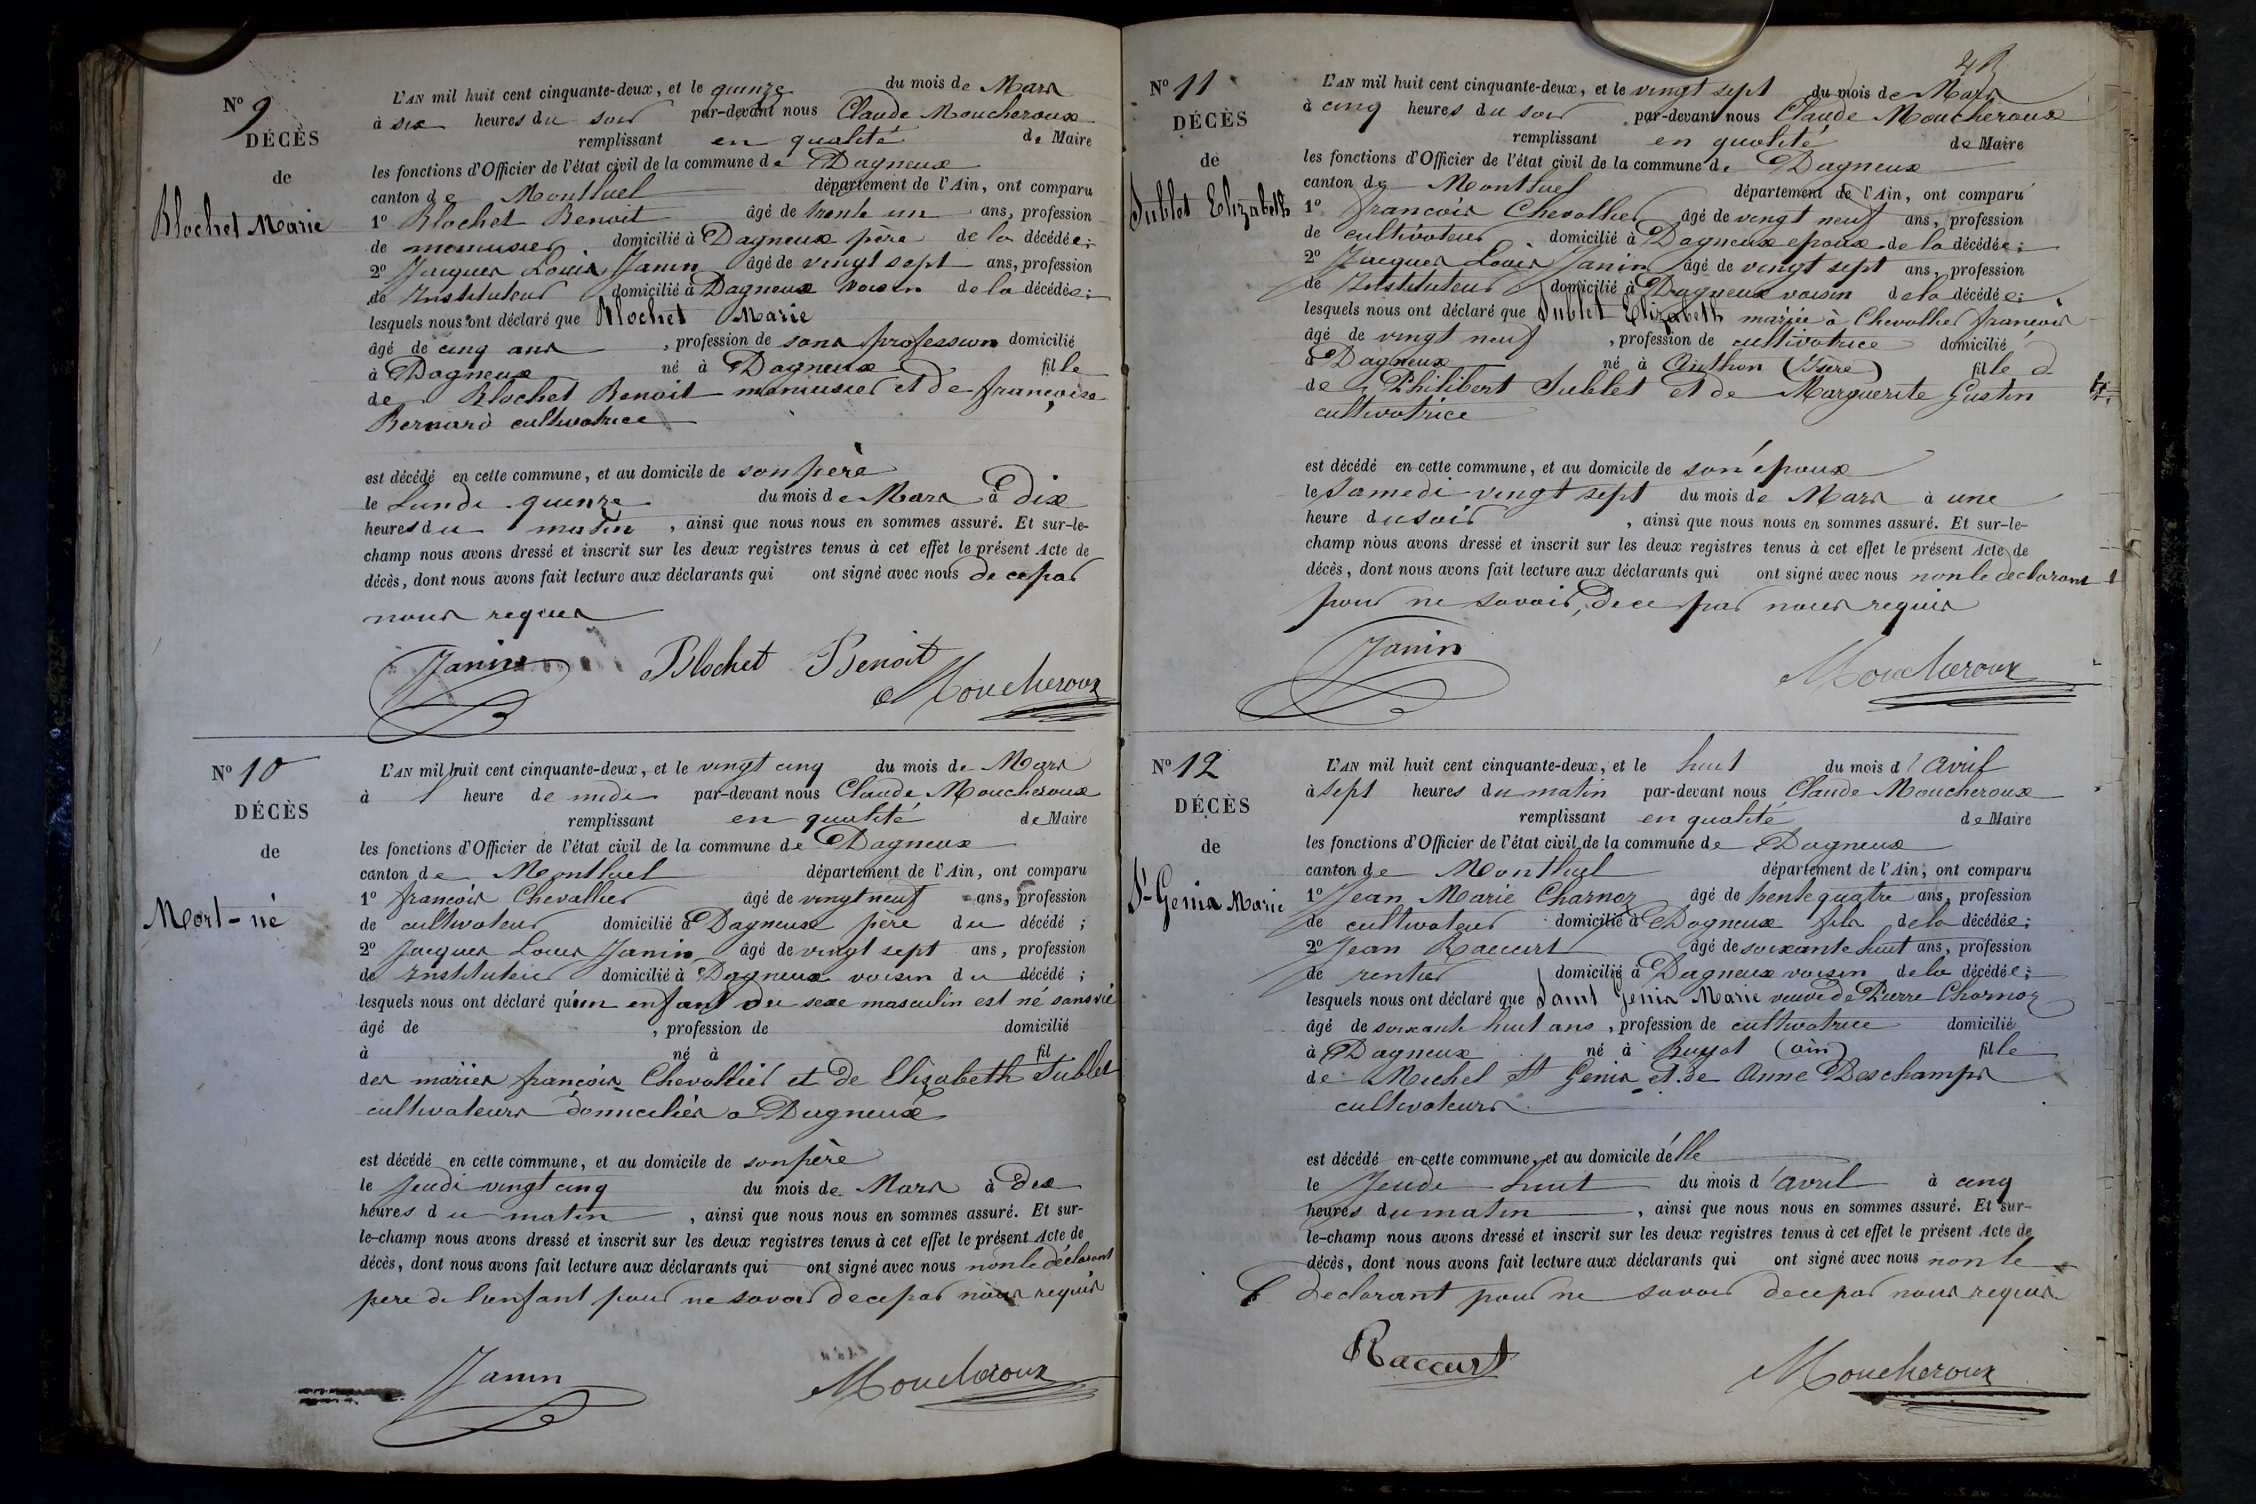 N° 9
DÉCÈS
de
Blochet Marie
L'AN mil huit cent cinquante-deux, et le quinze du mois de Mars
à six heures du soir par-devant nous Claude Moucheroux
remplissant en qualité de Maire
les fonctions d'Officier de l'état civil de la commune de Dagneux
canton de Montluel département de l'Ain, ont comparu
1° Blochet Benoit âgé de trente un ans, profession
de menuisier domicilié à Dagneux père de la décédée;
2° Jacques Louis Janin âgé de vingt sept ans, profession
de Instituteur domicilié à Dagneux voisin de la décédée;
lesquels nous ont déclaré que Blochet Marie
âgé de cinq ans, profession de sans profession domicilié
à Dagneux né à Dagneux fille
de Blochet Benoit menuisier et de françoise
Bernard cultivatrice
est décédé en cette commune, et au domicile de son père
le Lundi quinze du mois de Mars à Dix
heures du matin, ainsi que nous nous en sommes assuré. Et sur-le-
champ nous avons dressé et inscrit sur les deux registres tenus à cet effet le présent Acte de
décès, dont nous avons fait lecture aux déclarants qui ont signé avec nous de ce par
nous requis
Janin Blochet Benoit
Moucheroux
N° 10
DÉCÈS
de
Mort-né
L'AN mil huit cent cinquante-deux, et le vingt cinq du mois de Mars
à 1 heure de midi par-devant nous Claude Moucheroux
remplissant en qualité de Maire
les fonctions d'Officier de l'état civil de la commune de Dagneux
canton de Montluel département de l'Ain, ont comparu
1° françois Chevallier âgé de vingt neuf ans, profession
de cultivateur domicilié à Dagneux père du décédé;
2° Jacques Louis Janin âgé de vingt sept ans, profession
de Instituteur domicilié à Dagneux voisin du décédé;
lesquels nous ont déclaré qu'un enfant du sexe masculin est né sans vie
âgé de , profession de domicilié
à né à fil
des mariés françois Chevallier et de Elizabeth Sublet
cultivateurs domiciliés a Dagneux
est décédé en cette commune, et au domicile de son père
le Jeudi vingt cinq du mois de Mars à Dix
heures du matin, ainsi que nous nous en sommes assuré. Et sur-
le-champ nous avons dressé et inscrit sur les deux registres tenus à cet effet le présent Acte de
décès, dont nous avons fait lecture aux déclarants qui ont signé avec nous non le déclarant
pere de l'enfant pour ne savoir de ce par nous requis
Janin Moucheroux
N° 11
DÉCÈS
de
Sublet Elizabeth
L'AN mil huit cent cinquante-deux, et le vingt sept du mois de Mars
à cinq heures du soir par-devant nous Claude Moucheroux
remplissant en qualité de Maire
les fonctions d'Officier de l'état civil de la commune de Dagneux
canton de Montluel département de l'Ain, ont comparu
1° francois Chevallier âgé de vingt neuf ans, profession
de cultivateur domicilié à Dagneux epoux de la décédée;
2° Jacques Louis Janin âgé de vingt sept ans, profession
de Instituteur domicilié à Dagneux voisin de la décédée;
lesquels nous ont déclaré que Sublet Elizabeth mariée à Chevallier françois
âgé de vingt neuf, profession de cultivatrice domicilié
à Dagneux né à Anthon (Isère) fille
de Philibert Sublet et de Marguerite Gustin
cultivatrice
est décédé en cette commune, et au domicile de son epoux
le Samedi vingt sept du mois de Mars à une
heure du soir, ainsi que nous nous en sommes assuré. Et sur-le-
champ nous avons dressé et inscrit sur les deux registres tenus à cet effet le présent Acte de
décès, dont nous avons fait lecture aux déclarants qui ont signé avec nous non le declarant
pour ne savoir, de ce par nous requis
Janin
Moucheroux
N° 12
DÉCÈS
de
St Genis Marie
L'AN mil huit cent cinquante-deux, et le huit du mois d'avril
à sept heures du matin par-devant nous Claude Moucheroux
remplissant en qualité de Maire
les fonctions d'Officier de l'état civil de la commune de Dagneux
canton de Montluel département de l'Ain, ont comparu
1° Jean Marie Charnoz âgé de trente quatre ans, profession
de cultivateur domicilié à Dagneux fils de la décédée;
2° Jean Raccurt âgé de soixante huit ans, profession
de rentier domicilié à Dagneux voisin de la décédée;
lesquels nous ont déclaré que Saint Genis Marie veuve de Pierre Charnoz
âgé de soixante huit ans, profession de cultivatrice domicilié
à Dagneux né à (ain) fille
de Michel St Genis et de Anne Deschamps
cultivateurs
est décédé en cette commune, et au domicile d'elle
le Jeudi huit du mois d'avril à cinq
heures du matin, ainsi que nous nous en sommes assuré. Et sur-
le-champ nous avons dressé et inscrit sur les deux registres tenus à cet effet le présent Acte de
décès, dont nous avons fait lecture aux déclarants qui ont signé avec nous non le
declarant pour ne savoir de ce par nous requis
Raccurt
Moucheroux